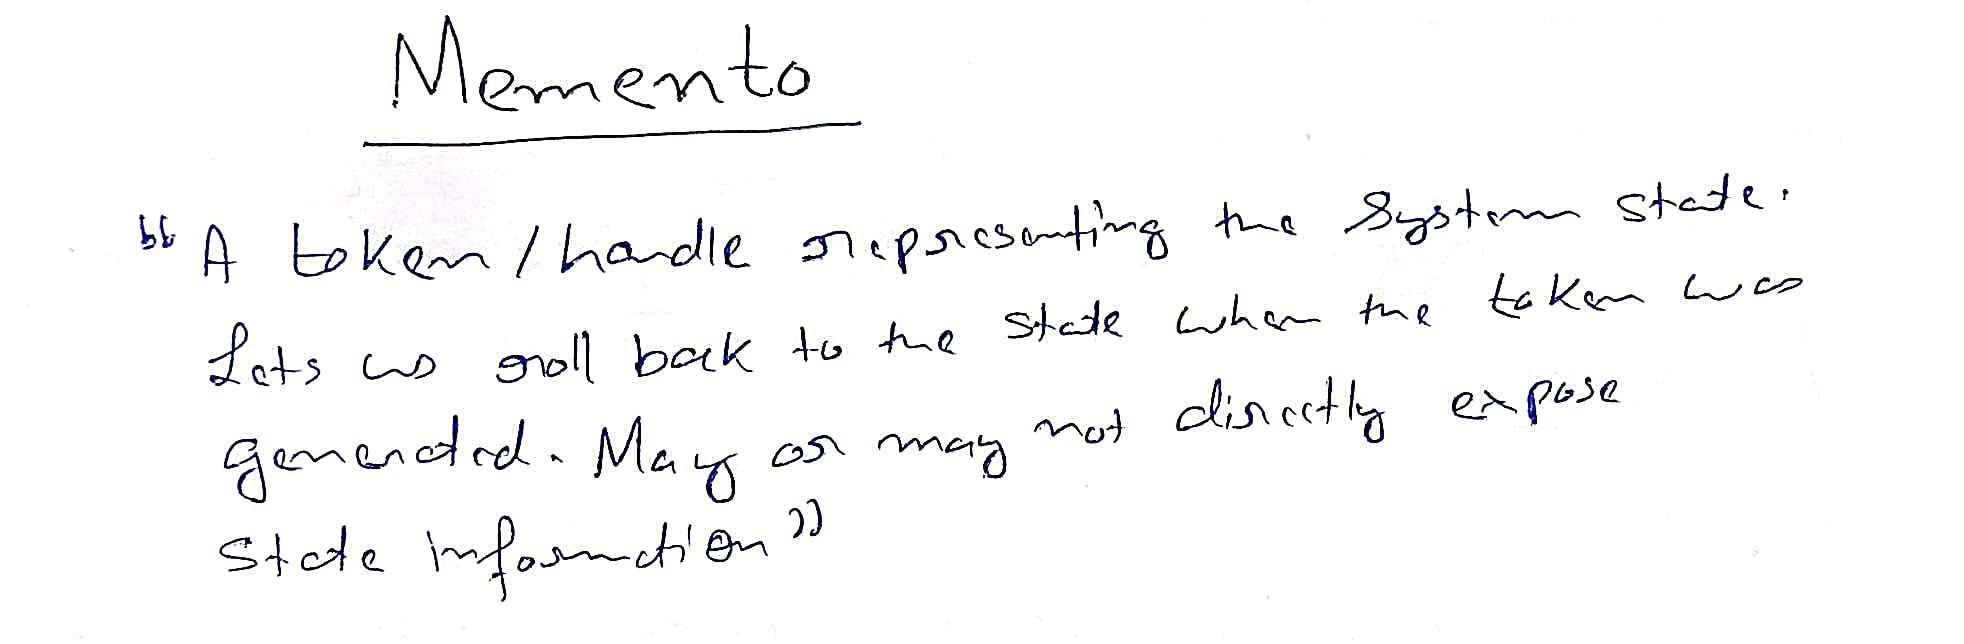 Memento
“A token/handle representing the System state.
Lets us roll back to the state when the token was
generated. May or may not directly expose
state information”